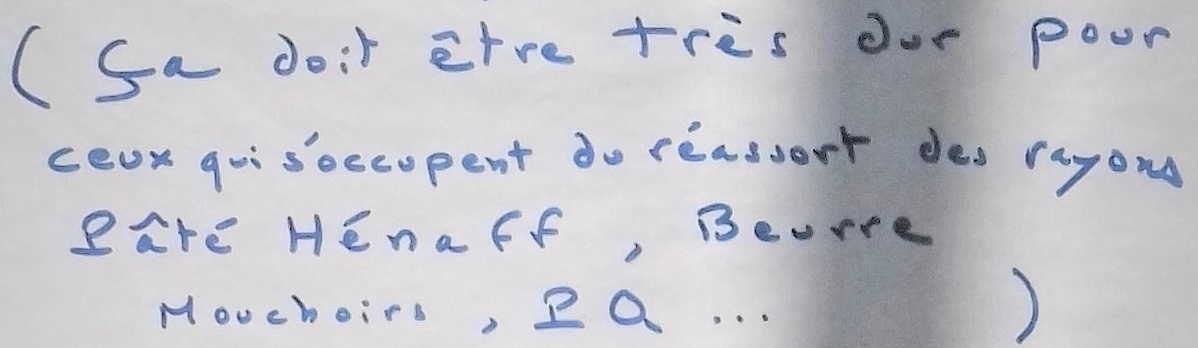 ( ça doit être très dur pour
ceux qui s'occupent du réassort des rayons
Pâté Hénaff, Beurre
Mouchoirs, PQ ... )